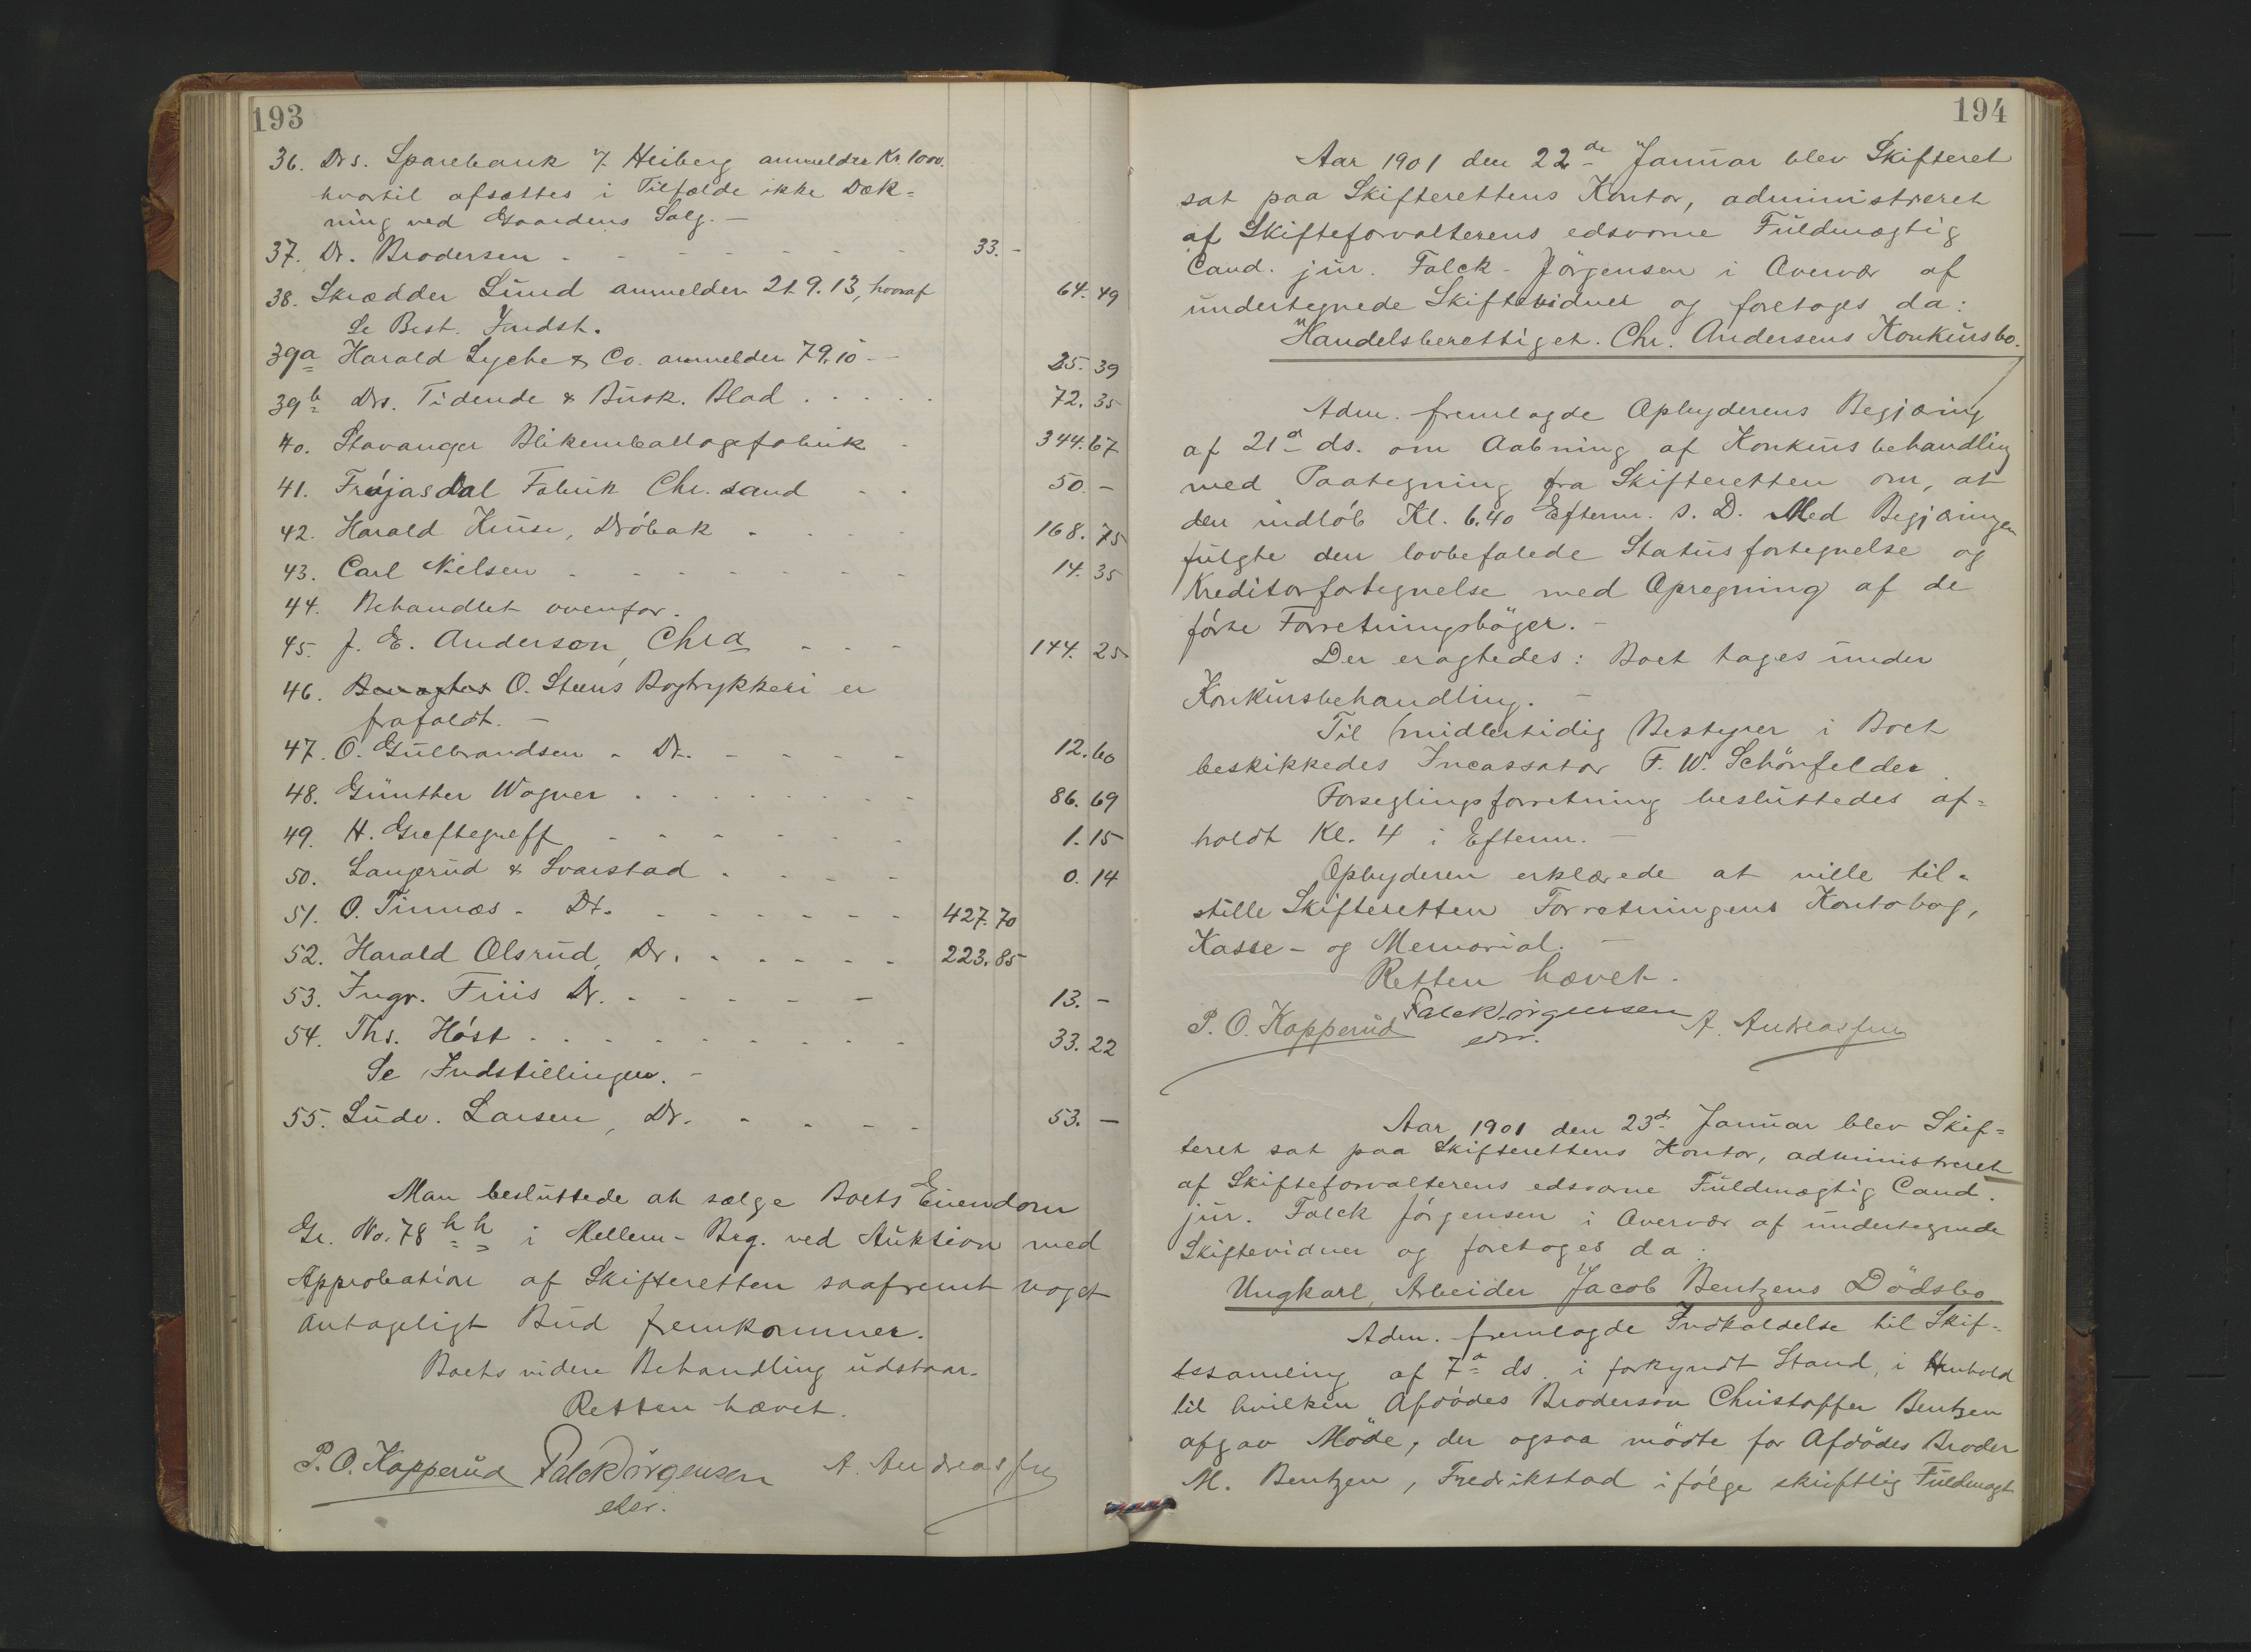 193
36. Drs. Sparebank % Heiberg anmelder Kr. 1000.
hvortil afsættes i Tilfælde ikke Dæk=
ning ved Gaardens Salg. —
37. Dr. Brodersen - - - - - - - 33. -
38. Skrædder Lund anmelder 219.13, hvoraf 64.49
Se Best. Indst.
39a Harald Lyche & Co. anmelder 79.10 - 25.39
39b Drs. Tidende & Busk. Blad . . . . . 72.35
40. Stavanger Blikemballagefabrik - 344.67
41. Frøjasdal Fabrik Chr. sand - - 50. -
42. Harald Kruse, Drøbak - - - - 168.75
43. Carl Nielsen - - - - - - - 14.35
44. Behandlet ovenfor.
45. J. E. Anderson, Chra - - - 144.25
46. O. Steens Bogtrykkeri er
frafaldt. —
47. O. Gulbrandsen - Dr. - - - - - 12.60
48. Günther Wagner . . . . . . . . 86.69
49. H. Greftegreff - - - - - - 1.15
50. Langerud & Svarstad - - - - 0.14
51. O. Tinnæs - Dr. - - - - - - 427.70
52. Harald Olsrud, Dr. - - - - - 223.85
53. Ingr. Friis Dr. - - - - - 13. -
54. Ths. Høst . . . . . . . . . 33.22
Se Indstillingen. -
55. Ludv. Larsen, Dr. - - - - - 53. —
Man besluttede at sælge Boets Eiendom
Gr. No. 78 hh i Mellem-Brg. ved Auktion med
Approbation af Skifteretten saafremt noget
antageligt Bud fremkommer.
Boets videre Behandling udstaar.
Retten hævet.
P. O. Kopperud Falck Jørgensen A. Andreassen
edsv.
194
Aar 1901 den 22de Januar blev Skifteret
sat paa Skifterettens Kontor, administreret
af Skifteforvalterens edsvorne Fuldmægtig
Cand. jur. Falck-Jørgensen i Overvær af
undertegnede Skiftevidner og foretoges da:
Handelsberettiget. Chr. Andersens Konkursbo.
Adm. fremlagde Opbyderens Begjæring
af 21d ds. om Aabning af Konkursbehandling
med Paategning fra Skifteretten om, at
den indløb Kl. 6.40 Efterm. s. D. Med Begjæringen
fulgte den lovbefalede Statusfortegnelse og
Kreditorfortegnelse med Opregning af de
førte Forretningsbøger. -
Der eragtedes: Boet tages under
Konkursbehandling. —
Til midlertidig Bestyrer i Boet
beskikkedes Incassator F. W. Schönfelder.
Forseglingsforretning besluttedes af=
holdt Kl. 4 i Efterm. —
Opbyderen erklærede at ville til=
stille Skifteretten Forretningens Kontobog,
Kasse- og Memorial. —
Retten hævet.
P. O. Kopperud Falck Jørgensen A. Andreassen
edsv.
Aar 1901 den 23d Januar blev Skif=
teret sat paa Skifterettens Kontor, administreret
af Skifteforvalterens edsvorne Fuldmægtig Cand.
jur. Falck Jørgensen i Overvær af undertegnede
Skiftevidner og foretoges da:
Ungkarl, Arbeider Jacob Bentzens Dödsbo
Adm. fremlagde Indkaldelse til Skif=
tesamling af 7d ds. i forkyndt Stand, i Henhold
til hvilken Afdødes Brodersøn Christoffer Bentzen
afgav Møde, der ogsaa mødte for Afdødes Broder
M. Bentzen, Fredrikstad ifølge skriftlig Fuldmagt